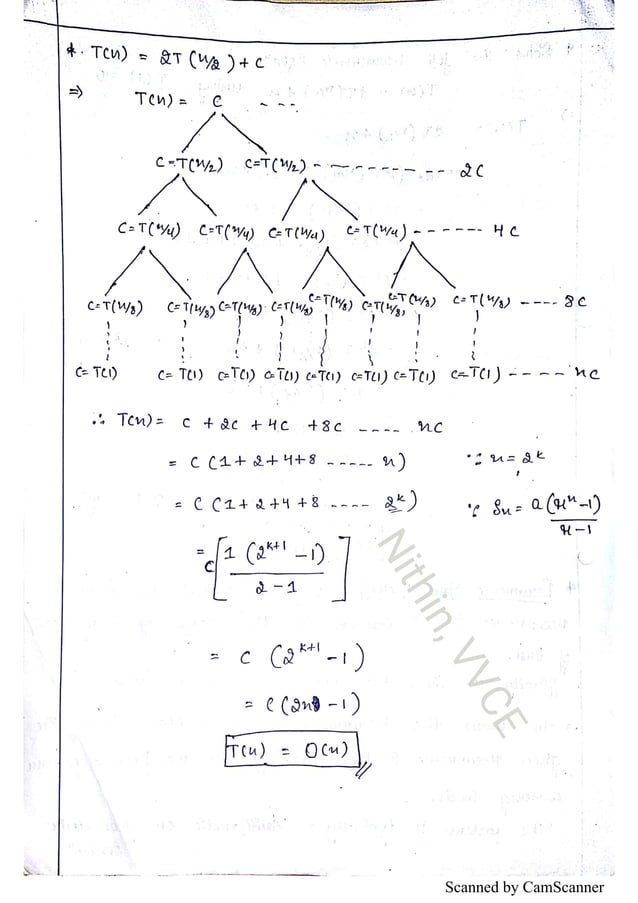 *. T(n) = 2T(n/2) + C
=> T(n) = C - - -
C=T(n/2) C=T(n/2) - - - - - - - - - 2C
C=T(n/4) C=T(n/4) C=T(n/4) C=T(n/4) - - - - - - 4C
C=T(n/8) C=T(n/8) C=T(n/8) C=T(n/8) C=T(n/8) C=T(n/8) C=T(n/8) C=T(n/8) - - - - 8C
C=T(1) C=T(1) C=T(1) C=T(1) C=T(1) C=T(1) C=T(1) C=T(1) - - - - - nC
∴ T(n) = C + 2C + 4C + 8C - - - - nC
= C (1+2+4+8 - - - - - n) ∵ n = 2^k
= C (1+2+4+8 - - - - 2^k) ∵ Sn = a(r^n-1)/r-1
= C [1 (2^(k+1) - 1) / 2-1]
= C (2^(k+1) - 1)
= C (2n - 1)
T(n) = O(n)
Nithin, VVCE
Scanned by CamScanner